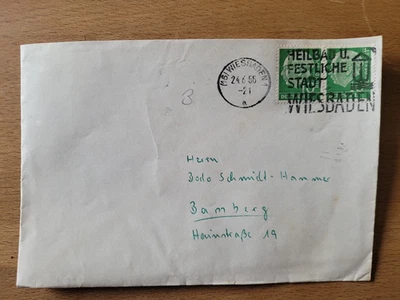 (16) WIESBADEN 1
24.6.55
-21
a
HEILBAD U.
FESTLICHE
STADT
WIESBADEN
Herrn
Bodo Schmidt-Hammer
Bamberg
Hainstraße 19